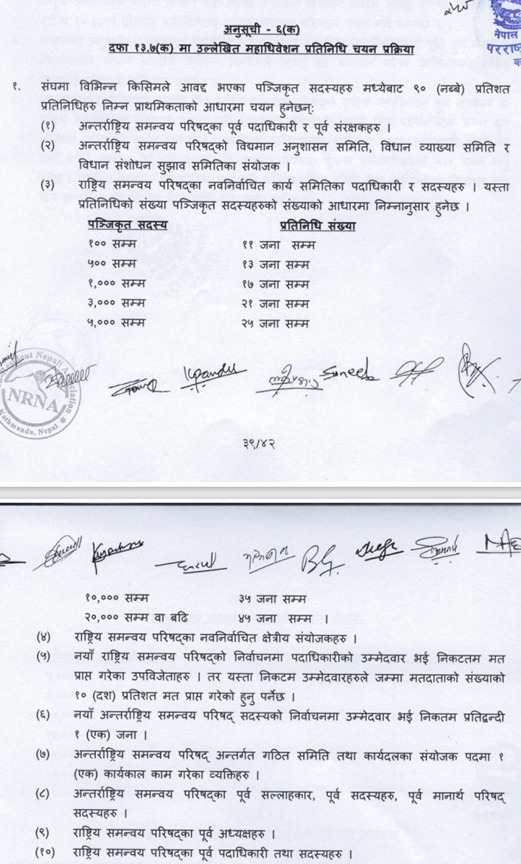 नेपाल
अनुसूची - ६(क)
दफा १३.७(क) मा उल्लेखित महाधिवेशन प्रतिनिधि चयन प्रक्रिया
१. संघमा विभिन्न किसिमले आवद्द भएका पञ्जिकृत सदस्यहरु मध्येबाट ९० (नब्बे) प्रतिशत
प्रतिनिधिहरु निम्न प्राथमिकताको आधारमा चयन हुनेछन्:
(१) अन्तर्राष्ट्रिय समन्वय परिषद्का पूर्व पदाधिकारी र पूर्व संरक्षकहरु ।
(२) अन्तर्राष्ट्रिय समन्वय परिषद्को विद्यमान अनुशासन समिति, विधान व्याख्या समिति र
विधान संशोधन सुझाव समितिका संयोजक ।
(३) राष्ट्रिय समन्वय परिषद्का नवनिर्वाचित कार्य समितिका पदाधिकारी र सदस्यहरु । यस्ता
प्रतिनिधिको संख्या पञ्जिकृत सदस्यहरुको संख्याको आधारमा निम्नानुसार हुनेछ ।
पञ्जिकृत सदस्य प्रतिनिधि संख्या
१०० सम्म ११ जना सम्म
५०० सम्म १३ जना सम्म
१,००० सम्म १७ जना सम्म
३,००० सम्म २१ जना सम्म
५,००० सम्म २५ जना सम्म
NRNA
३९/४२
१०,००० सम्म ३५ जना सम्म
२०,००० सम्म वा बढि ४५ जना सम्म ।
(४) राष्ट्रिय समन्वय परिषद्का नवनिर्वाचित क्षेत्रीय संयोजकहरु ।
(५) नयाँ राष्ट्रिय समन्वय परिषद्को निर्वाचनमा पदाधिकारीको उम्मेदवार भई निकटतम मत
प्राप्त गरेका उपविजेताहरु । तर यस्ता निकटम उम्मेदवारहरुले जम्मा मतदाताको संख्याको
१० (दश) प्रतिशत मत प्राप्त गरेको हुनु पर्नेछ ।
(६) नयाँ अन्तर्राष्ट्रिय समन्वय परिषद् सदस्यको निर्वाचनमा उम्मेदवार भई निकतम प्रतिद्वन्दी
१ (एक) जना ।
(७) अन्तर्राष्ट्रिय समन्वय परिषद् अन्तर्गत गठित समिति तथा कार्यदलका संयोजक पदमा १
(एक) कार्यकाल काम गरेका व्यक्तिहरु ।
(८) अन्तर्राष्ट्रिय समन्वय परिषद्का पूर्व सल्लाहकार, पूर्व सदस्यहरु, पूर्व मानार्थ परिषद्
सदस्यहरु ।
(९) राष्ट्रिय समन्वय परिषद्का पूर्व अध्यक्षहरु ।
(१०) राष्ट्रिय समन्वय परिषद्का पूर्व पदाधिकारी तथा सदस्यहरु ।